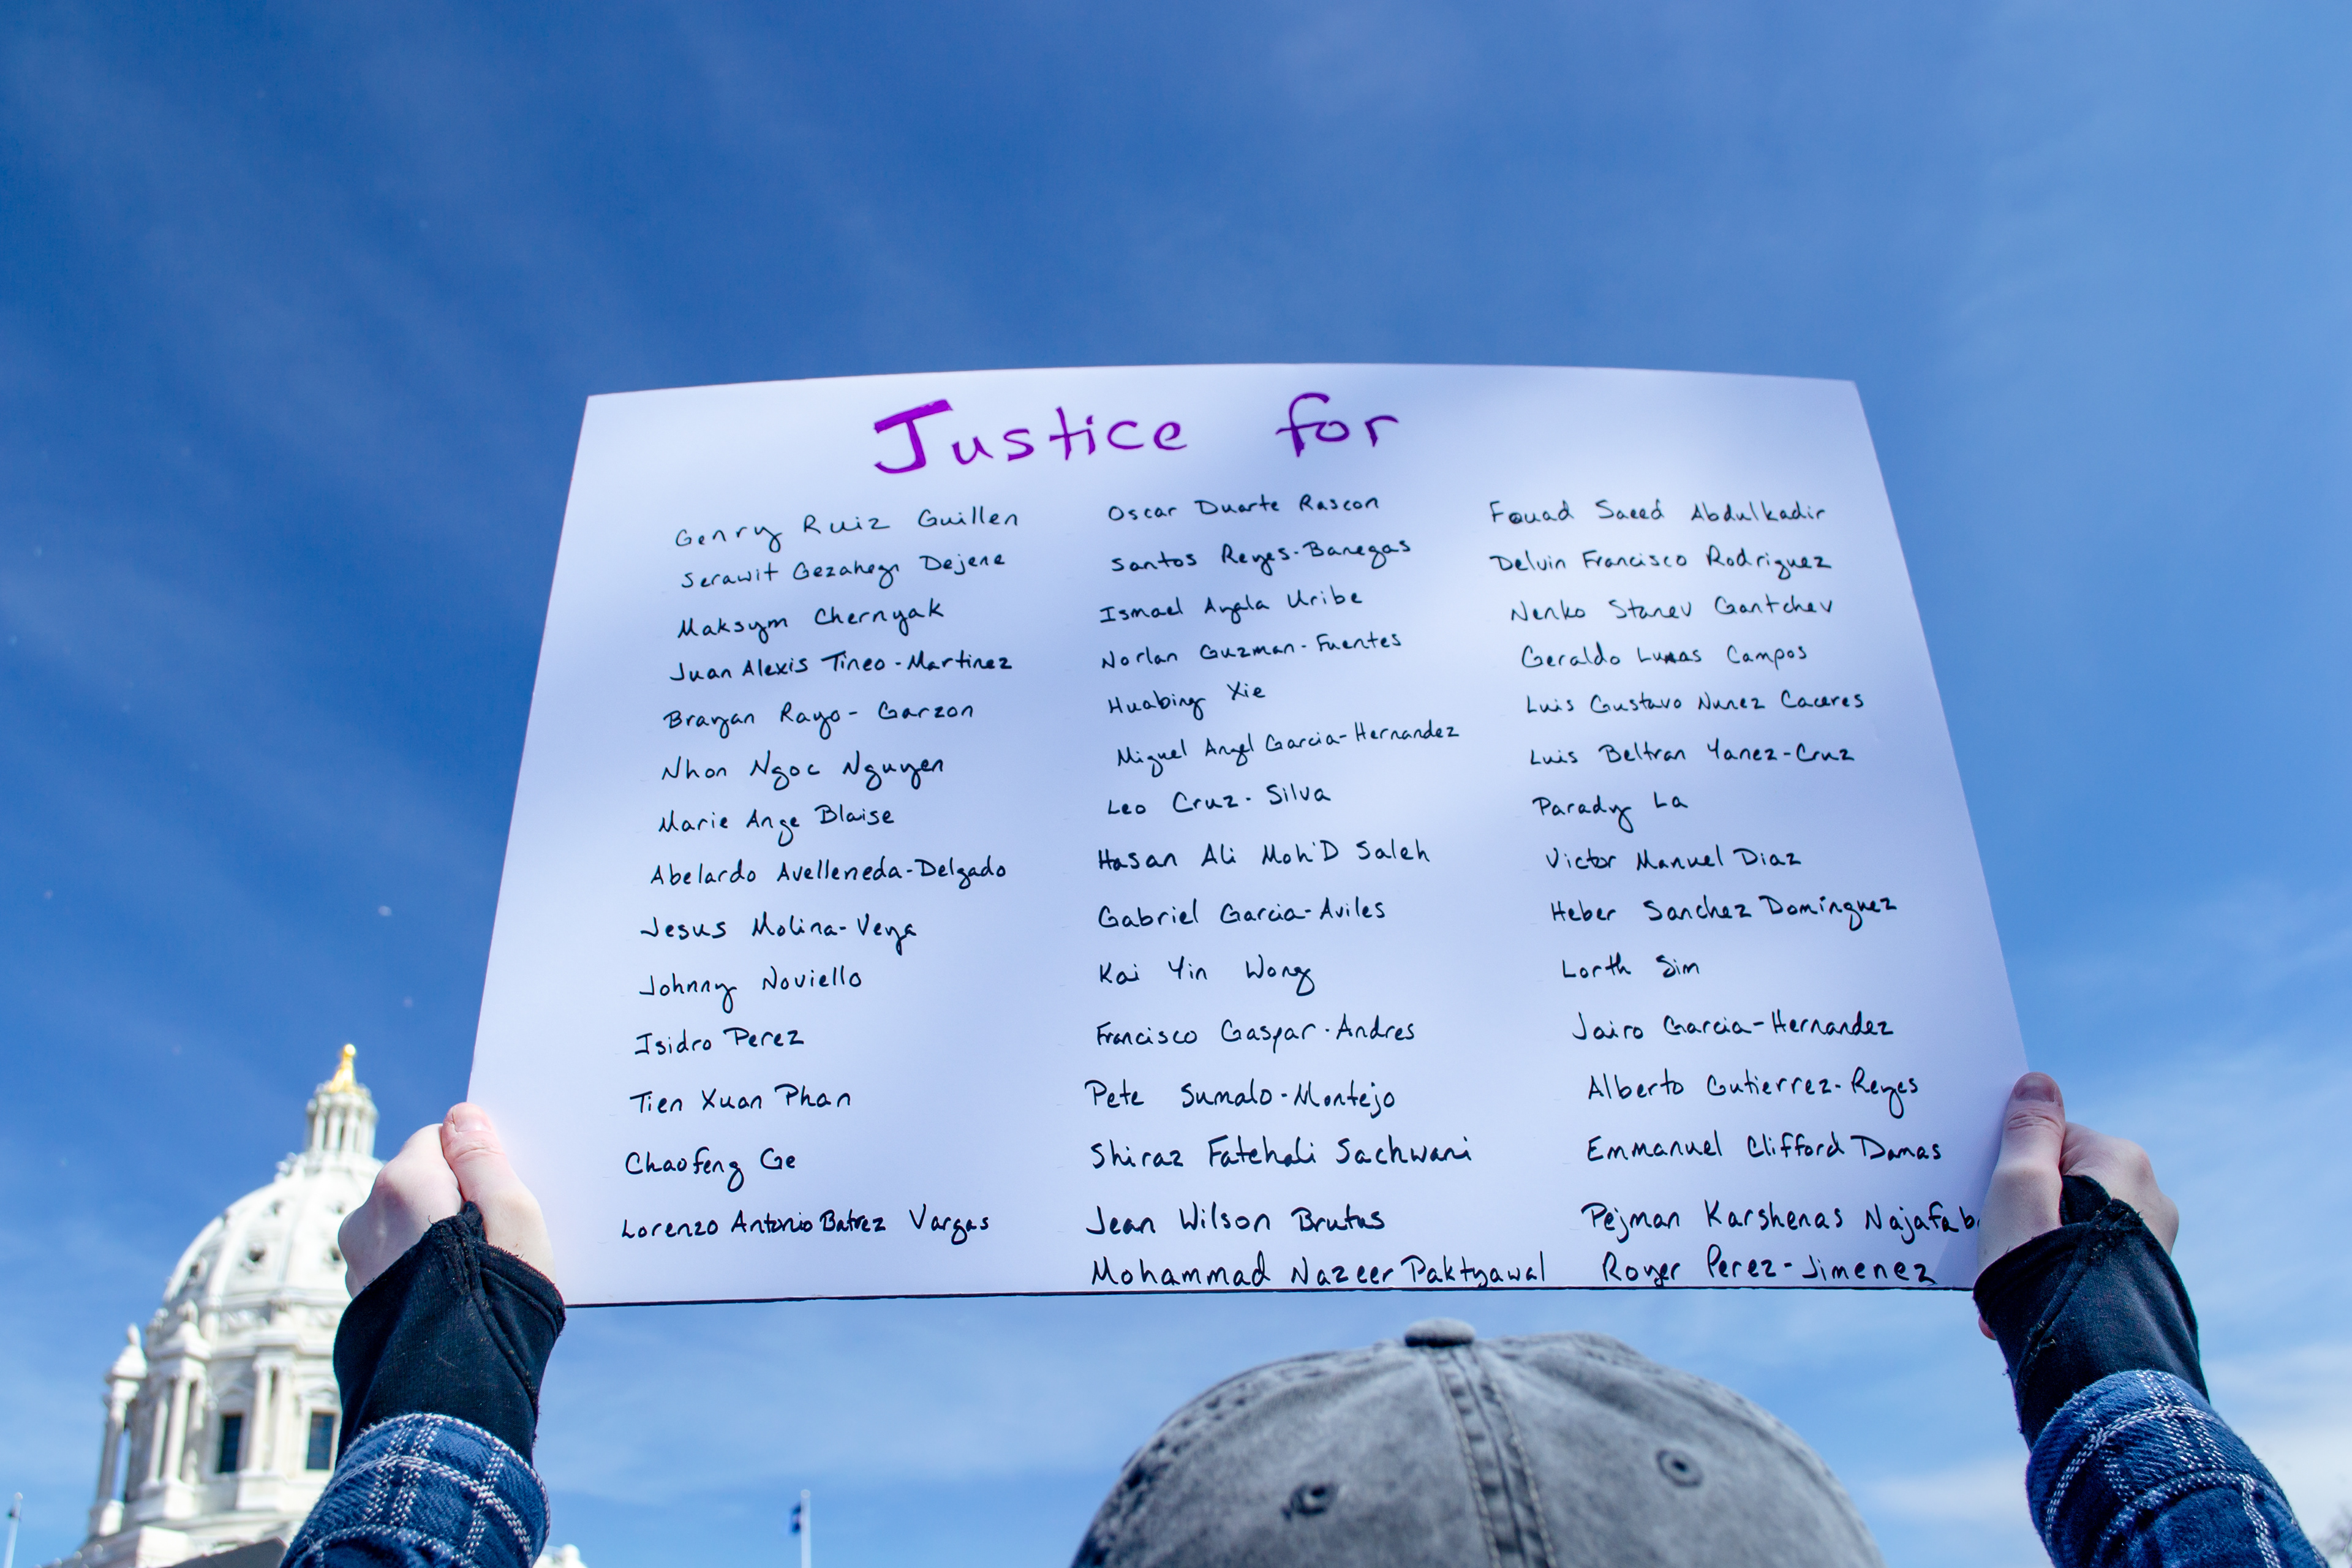 Justice for
Genry Ruiz Guillen
Serawit Gezahegn Dejene
Maksym Chernyak
Juan Alexis Tineo-Martinez
Brayan Rayo-Garzon
Nhon Ngoc Nguyen
Marie Ange Blaise
Abelardo Avelleneda-Delgado
Jesus Molina-Veya
Johnny Noviello
Isidro Perez
Tien Xuan Phan
Chaofeng Ge
Lorenzo Antonio Batrez Vargas
Oscar Duarte Rascon
Santos Reyes-Banegas
Ismael Ayala Uribe
Norlan Guzman-Fuentes
Huabing Xie
Miguel Angel Garcia-Hernandez
Leo Cruz-Silva
Hasan Ali Moh'D Saleh
Gabriel Garcia-Aviles
Kai Yin Wong
Francisco Gaspar-Andres
Pete Sumalo-Montejo
Shiraz Fatehali Sachwani
Jean Wilson Brutus
Mohammad Nazeer Paktyawal
Fouad Saeed Abdulkadir
Delvin Francisco Rodriguez
Nenko Stanev Gantchev
Geraldo Lunas Campos
Luis Gustavo Nunez Caceres
Luis Beltran Yanez-Cruz
Parady La
Victor Manuel Diaz
Heber Sanchez Dominguez
Lorth Sim
Jairo Garcia-Hernandez
Alberto Gutierrez-Reyes
Emmanuel Clifford Damas
Pejman Karshenas Najafab
Royer Perez-Jimenez